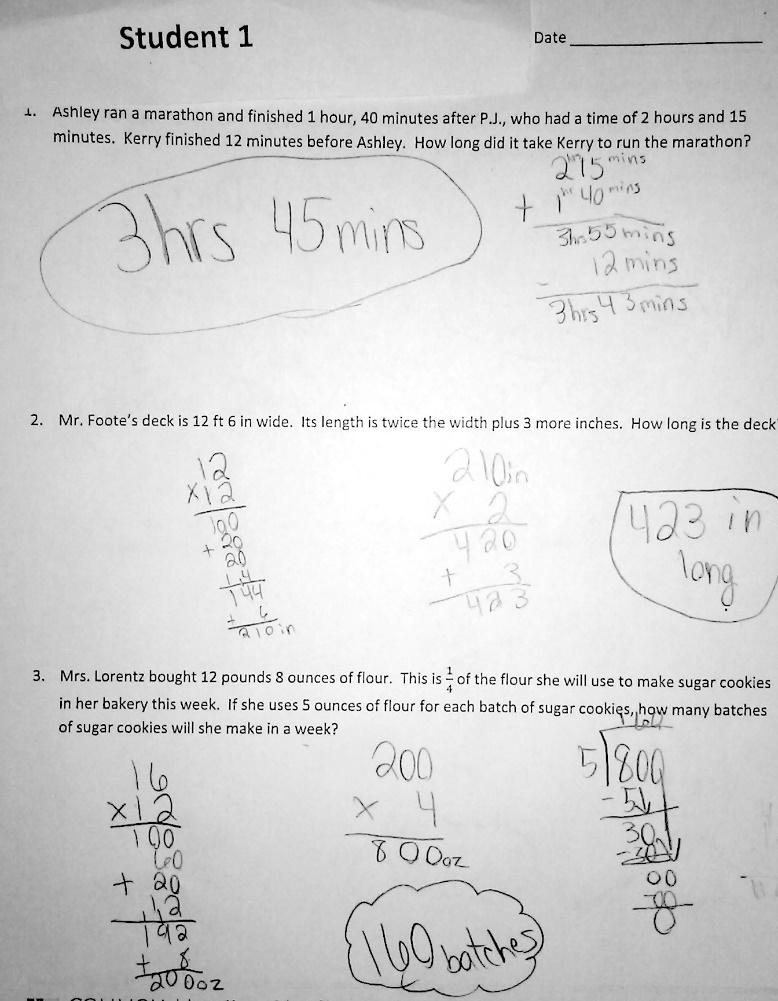 Student 1
Date
1. Ashley ran a marathon and finished 1 hour, 40 minutes after P.J., who had a time of 2 hours and 15
minutes. Kerry finished 12 minutes before Ashley. How long did it take Kerry to run the marathon?
3hrs 45mins
2hr 15 mins
+ 1hr 40 mins
3hr 55 mins
- 12 mins
3hrs 43mins
2. Mr. Foote's deck is 12 ft 6 in wide. Its length is twice the width plus 3 more inches. How long is the deck
12
X12
100
+ 20
20
4
144
+ 6
210in
210in
X 2
420
+ 3
423
423 in
long
3. Mrs. Lorentz bought 12 pounds 8 ounces of flour. This is 1/4 of the flour she will use to make sugar cookies
in her bakery this week. If she uses 5 ounces of flour for each batch of sugar cookies, how many batches
of sugar cookies will she make in a week?
16
X12
100
60
+ 20
12
192
+ 8
200oz
200
X 4
800oz
160 batches
160
5 800
- 5
30
- 30
00
00
0